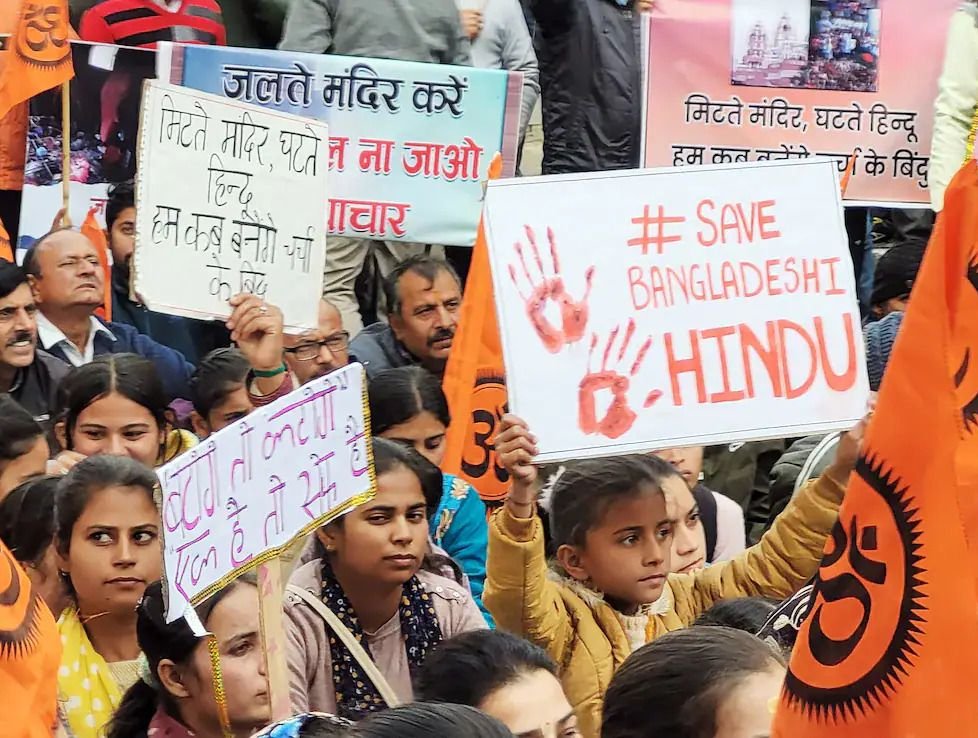 जलते मंदिर करें
ना जाओ
मिटते मंदिर, घटते
हिन्दू
हम कब बनेंगे चर्चा
के बिंदु
मिटते मंदिर, घटते हिन्दू
हम कब के बिंदु
# SAVE
BANGLADESHI
HINDU
बटोगे तो कटोगे"
"एक है तो सेफ है